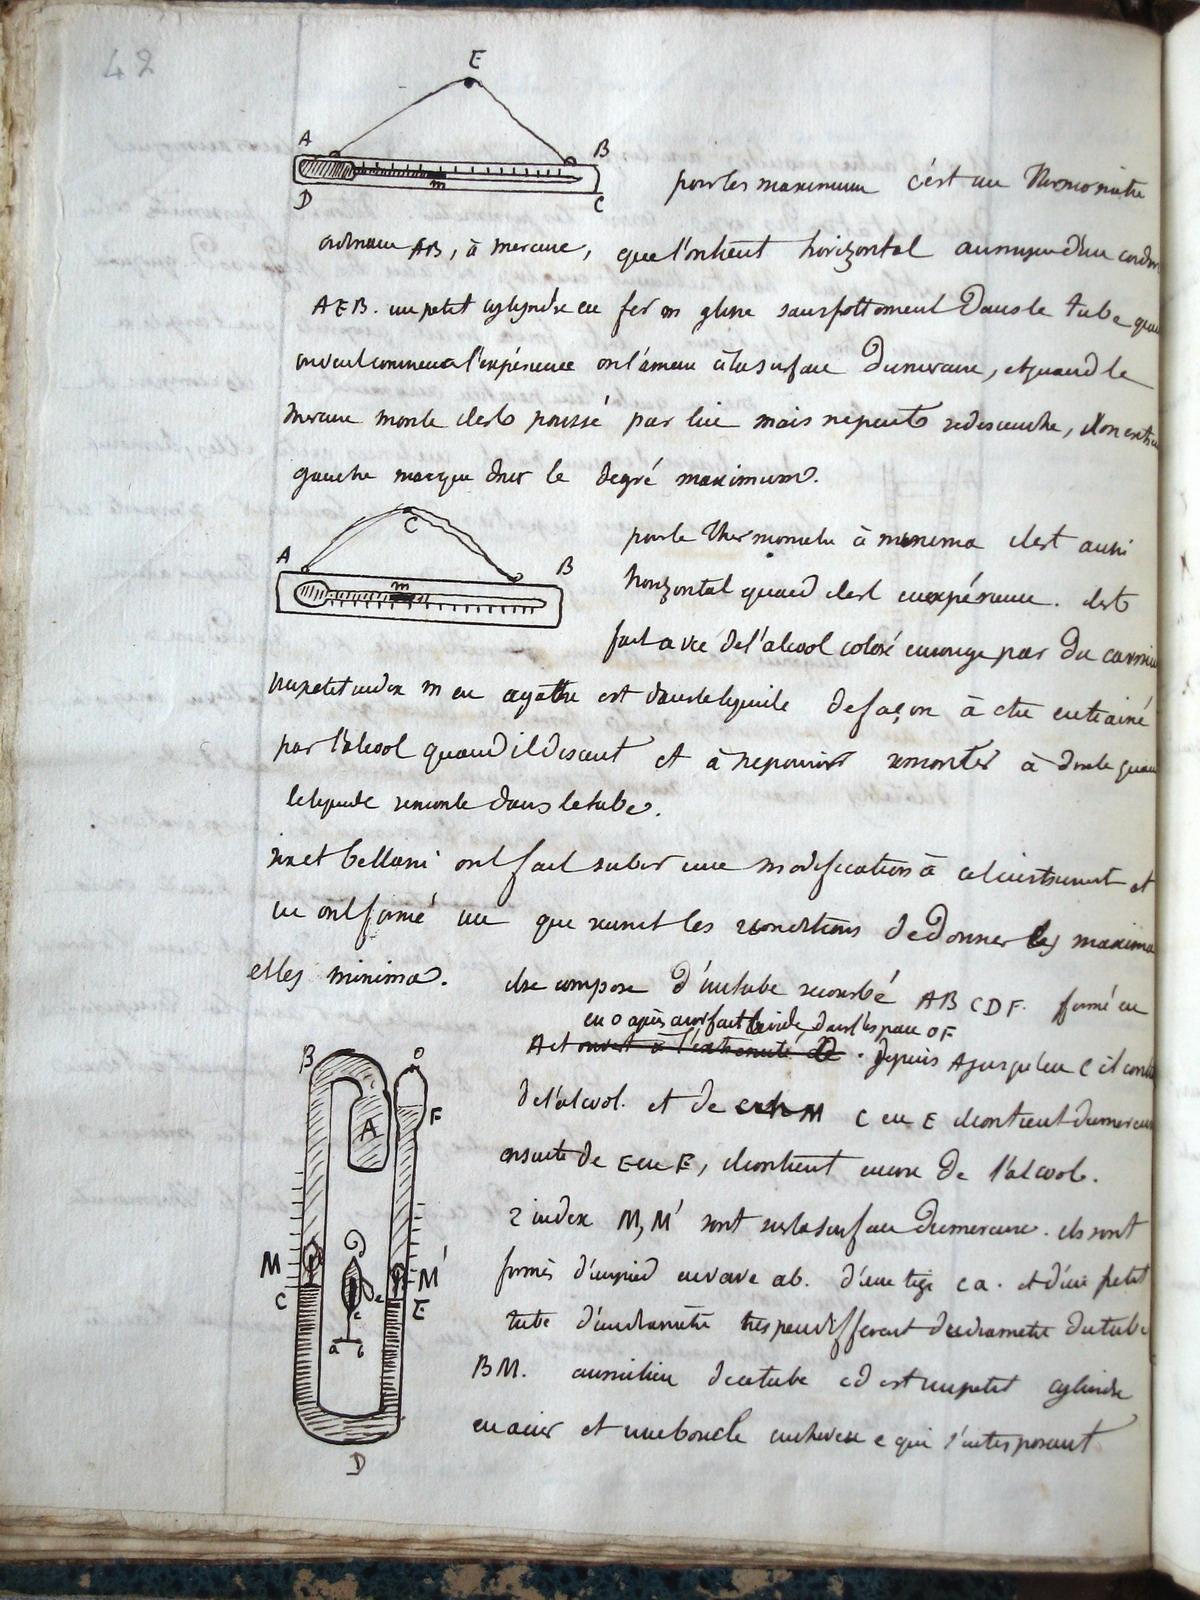 42
E
A
B
m
D
C
pour les maximum c'est un Thermomètre
ordinaire AB, à mercure, que l'on tient horizontal au moyen d'un cordon
AEB. un petit cylyndre en fer m glisse sans frottement Dans le tube quand
on veut commencer l'expérience on l'amène à la surface Du mercure, et quand le
Mercure monte il est poussé par lui mais ne peut redescendre,
gauche marque donc le degré maximum.
C
A
B
m
pour le Thermometre à minima il est aussi
horizontal quand il est en expérience. il est
fait avec de l'alcool coloré en rouge par du carmin
un petit index m en agathe est dans le liquide de façon à etre entrainé
par l'alcool quand il descent et à ne pouvoir remonter à droite quand
le liquide remonte dans le tube.
Six et bellani ont fait subir une modification à cet instrument et
en ont formé un que reunit les conditions de Donner les maxima
et les minima. il se compose d'un tube recourbé ABCDF. fermé en
en O après avoir fait le vide, dans l'espace OF
A et ouvert à l'extremité de . Depuis A jusqu'en C il contient
de l'alcool. et de M C en E il contient du mercure
ensuite de E en F, il contient encore de l'alcool.
2 index M, M' sont sur la surface Du mercure. ils sont
formés d'un pied en ab. d'une tige ca. et d'un petit
tube d'un diametre très peu different du diametre du tube
BM. au milieu de ce tube cd est un petit cylindre
en acier et une boucle en cheveu e qui s'interposant
B
O
A
F
M
M'
C
E
e
c
a b
D